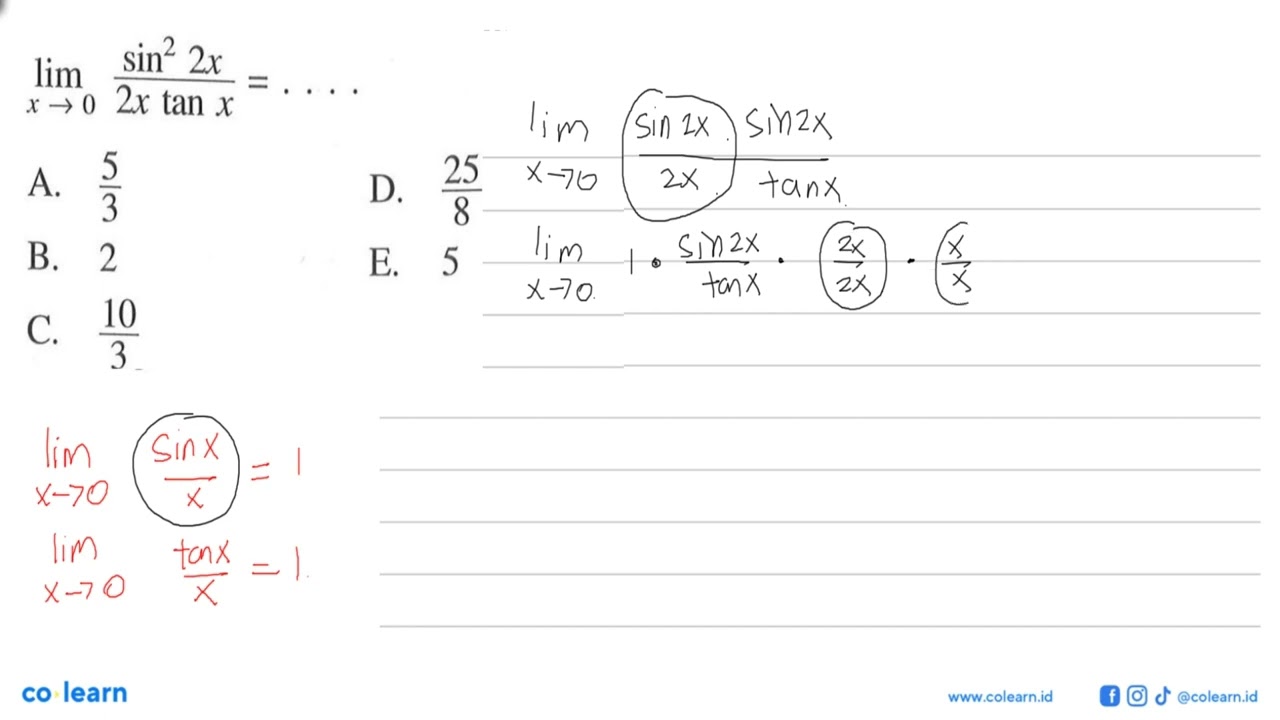 lim x→0 sin² 2x / 2x tan x = . . . .
A. 5/3
B. 2
C. 10/3
D. 25/8
E. 5
lim x→0 sin 2x / 2x . sin 2x / tan x
lim x→0 1 • sin 2x / tan x • 2x / 2x • x / x
lim x→0 sin x / x = 1
lim x→0 tan x / x = 1
co learn
www.colearn.id
@colearn.id